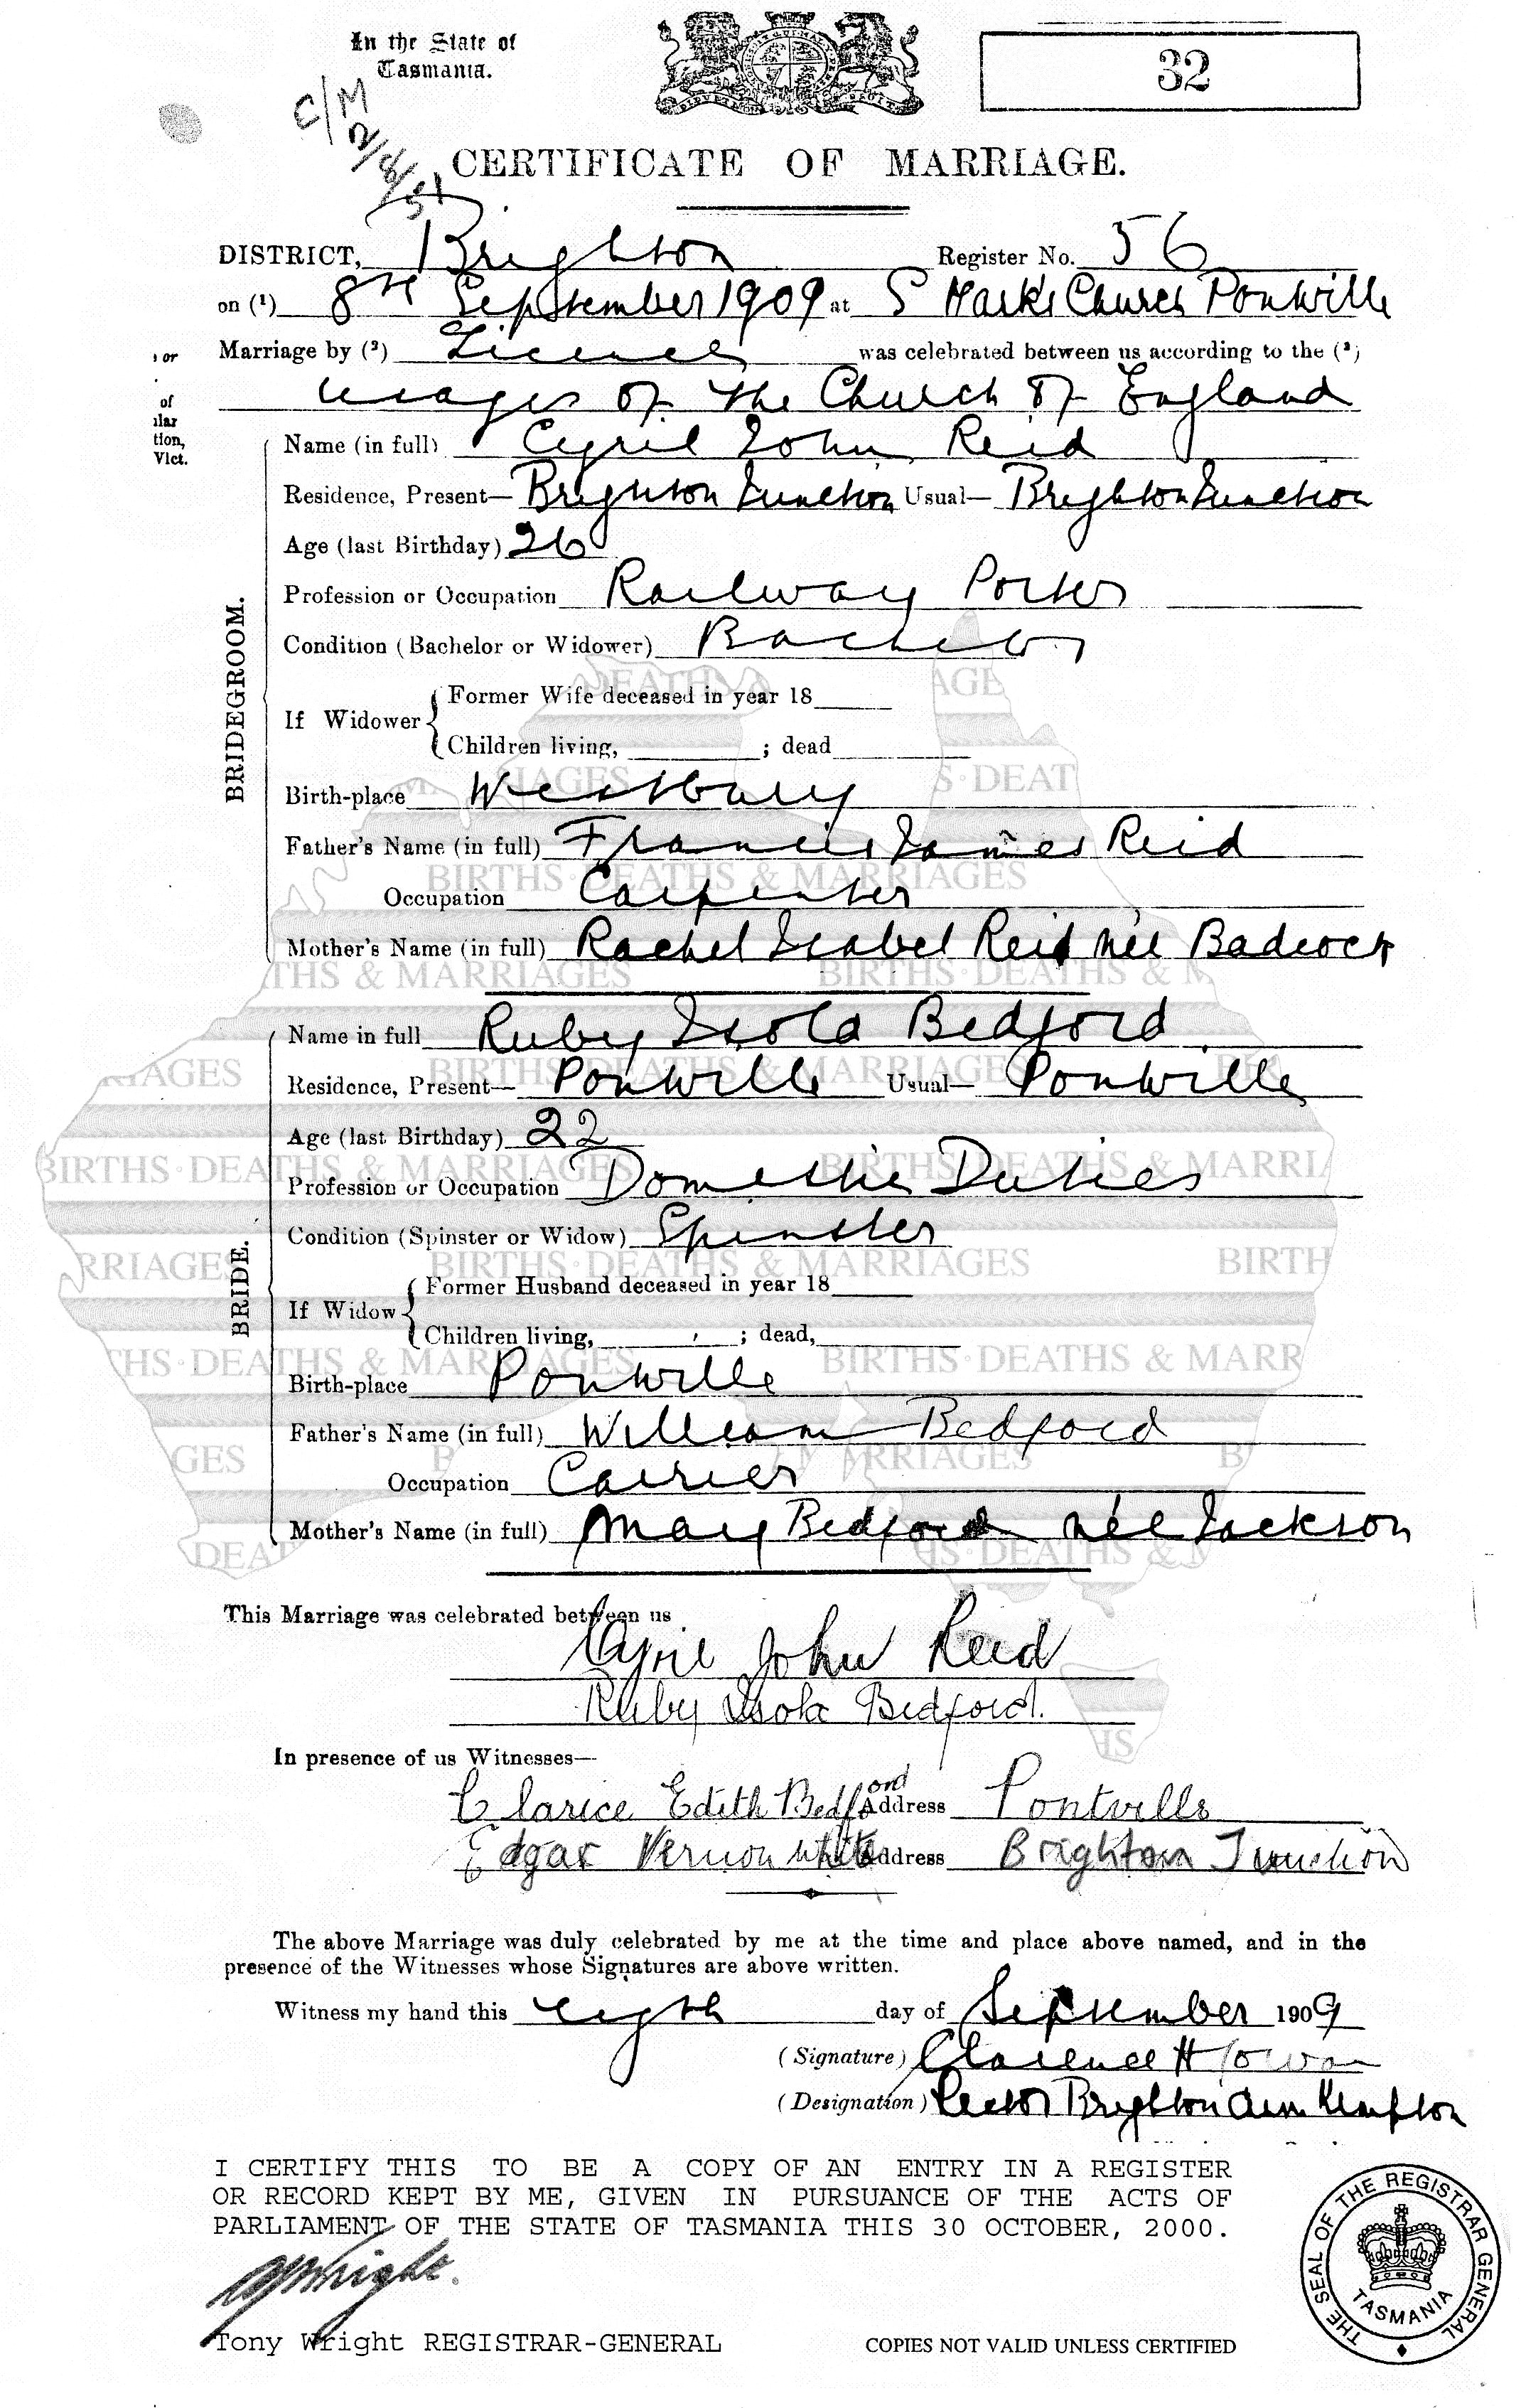 In the State of
Tasmania.
32
C/M
2/8/51
CERTIFICATE OF MARRIAGE.
DISTRICT, Brighton Register No. 56
on (¹) 8th September 1909 at S Marks Church Pontville
Marriage by (²) Licence was celebrated between us according to the (³)
usages of the Church of England
, or
of
ilar
tion,
Vict.
BRIDEGROOM.
Name (in full) Cyril John Reid
Residence, Present— Brighton Junction Usual— Brighton Junction
Age (last Birthday) 26
Profession or Occupation Railway Porter
Condition (Bachelor or Widower) Bachelor
If Widower { Former Wife deceased in year 18
Children living, ; dead
Birth-place Westbury
Father's Name (in full) Francis James Reid
Occupation Carpenter
Mother's Name (in full) Rachel Isabel Reid née Badcock
BRIDE.
Name in full Ruby Isola Bedford
Residence, Present— Pontville Usual— Pontville
Age (last Birthday) 22
Profession or Occupation Domestic Duties
Condition (Spinster or Widow) Spinster
If Widow { Former Husband deceased in year 18
Children living, ; dead,
Birth-place Pontville
Father's Name (in full) William Bedford
Occupation Carrier
Mother's Name (in full) Mary Bedford née Jackson
This Marriage was celebrated between us
Cyril John Reid
Ruby Isola Bedford.
In presence of us Witnesses—
Clarice Edith Bedford Address Pontville
Edgar Vernon White Address Brighton Junction
The above Marriage was duly celebrated by me at the time and place above named, and in the
presence of the Witnesses whose Signatures are above written.
Witness my hand this eigth day of September 1909
(Signature) Clarence H
(Designation) Rector Brighton cum Kempton
I CERTIFY THIS TO BE A COPY OF AN ENTRY IN A REGISTER
OR RECORD KEPT BY ME, GIVEN IN PURSUANCE OF THE ACTS OF
PARLIAMENT OF THE STATE OF TASMANIA THIS 30 OCTOBER, 2000.
Tony Wright REGISTRAR-GENERAL
COPIES NOT VALID UNLESS CERTIFIED
THE SEAL OF THE REGISTRAR GENERAL
TASMANIA